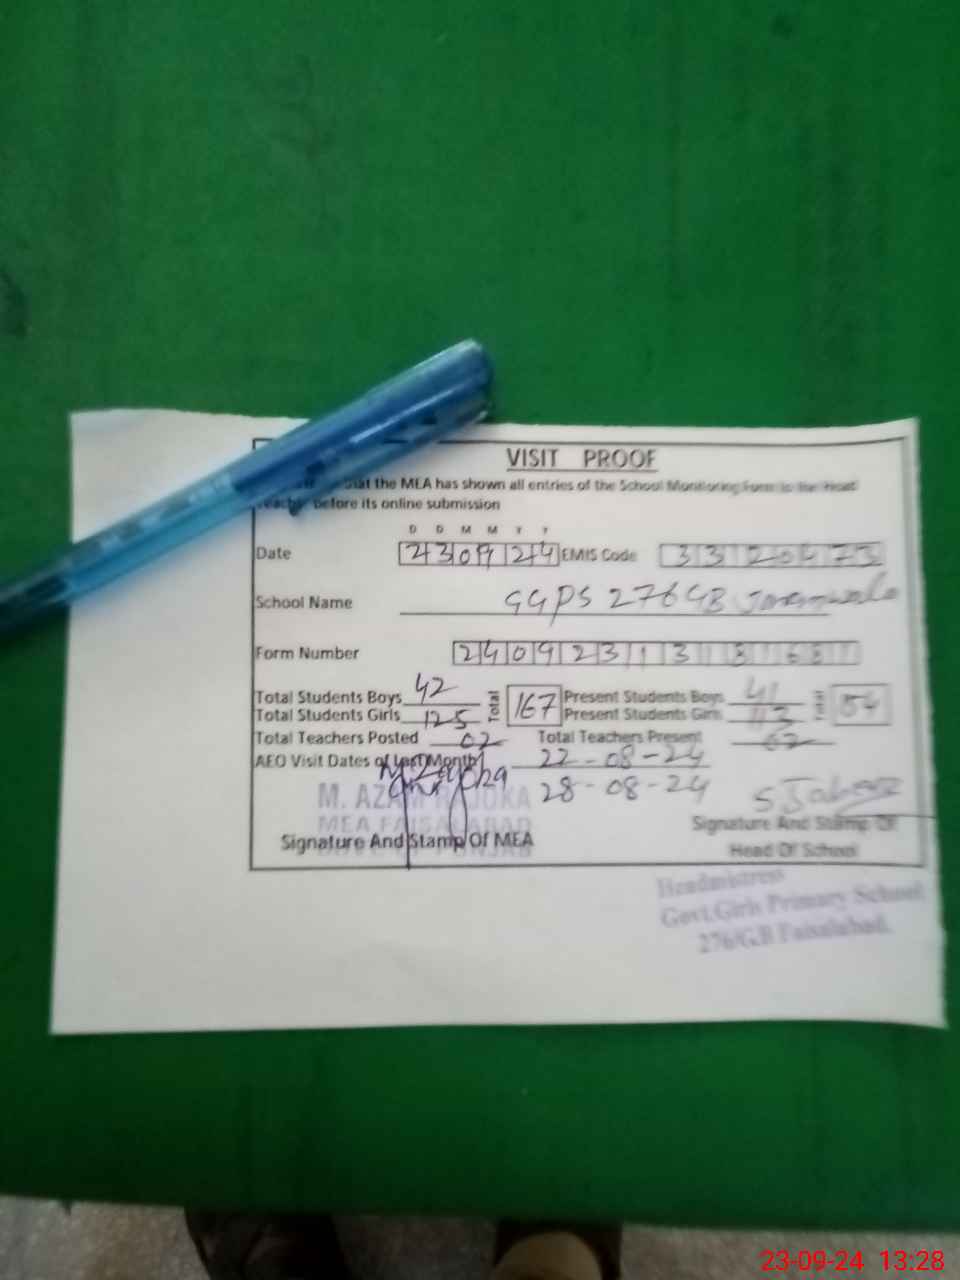 VISIT PROOF
that the MEA has shown all entries of the School Monitoring Form to the Head
before its online submission
D D M M Y Y
Date 230924 EMIS Code 33120473
School Name GGPS 276 GB
Form Number
Total Students Boys 42 Total 167 Present Students Boys 41 Total 154
Total Students Girls 125 Present Students Girls 113
Total Teachers Posted 02 Total Teachers Present 02
AEO Visit Dates of Last Month 22-08-24
28-08-24
M. AZAM
MEA FAISALABAD
GOVT. OF PUNJAB
Signature And Stamp Of MEA
Signature And Stamp Of
Head Of School
Headmistress
Govt.Girls Primary School
276/G.B Faisalabad.
23-09-24 13:28